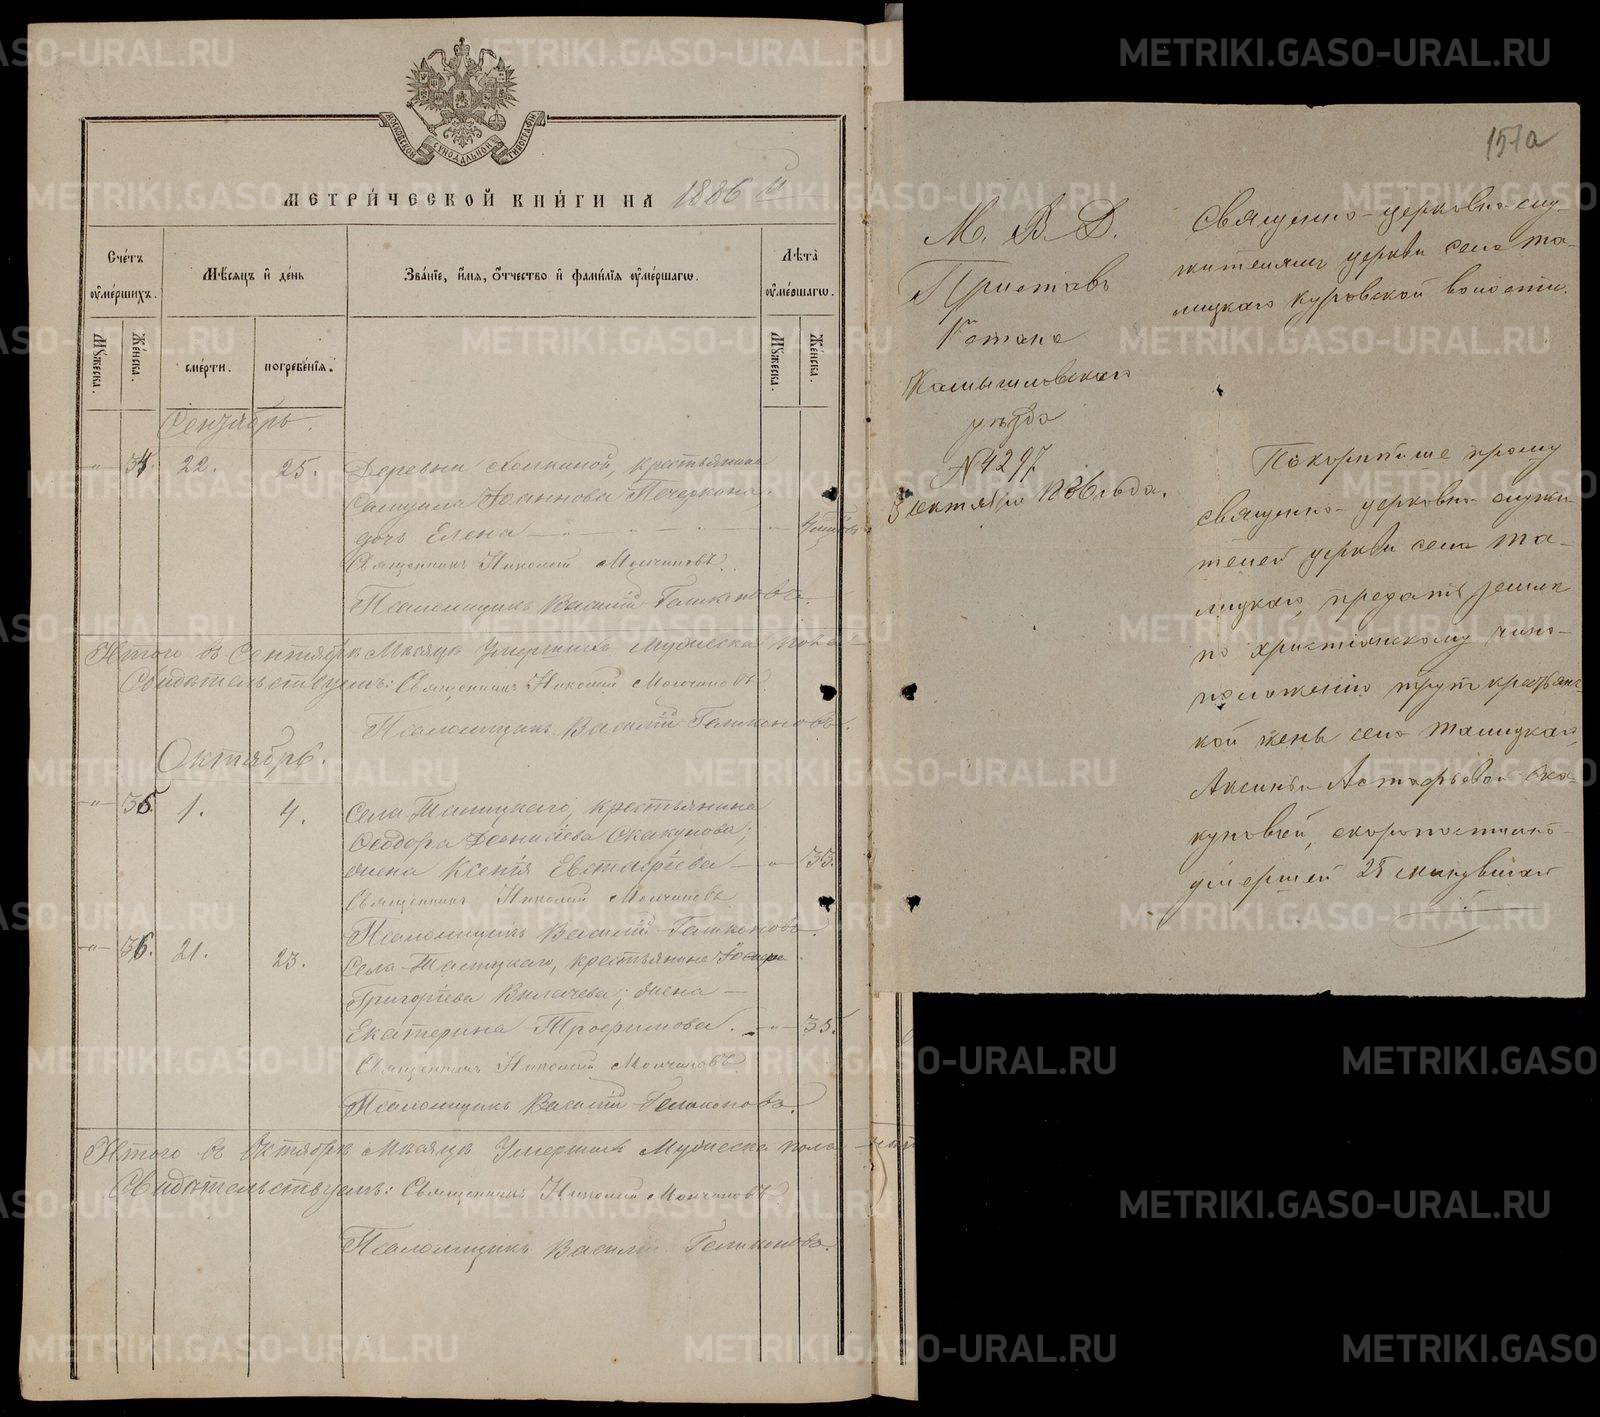 МОСКОВСКОЙ СѴНОДАЛЬНОЙ ТИПОГРАФІИ
МЕТРИ́ЧЕСКОЙ КНИ́ГИ НА 1886 й
Сче́тъ ѹ҆ме́ршихъ.
Мѣ́сяцъ и҆ де́нь
Зва́нїе, и҆́мѧ, ѻ҆́тчество и҆ фами́лїѧ ѹ҆ме́ршагѡ.
Лѣ́та ѹ҆ме́ршагѡ.
Мꙋ́жеска.
Же́нска.
сме́рти.
погребе́нїѧ.
Мꙋ́жеска.
Же́нска.
Сентябрь.
34. 22. 25. Деревни Холкиной, крестьянина
Самуила Іоаннова Печеркина,
дочь Елена
Священникъ Николай Молчановъ.
Псаломщикъ Василій
Итого въ Сентябрѣ Мѣсяцѣ Умершихъ Мужеска пола
Свидѣтельствуемъ: Священникъ Николай Молчановъ
Псаломщикъ Василій
Октябрь.
35. 1. 4. Села Талицкаго, крестьянина
Ѳеодора Діонисіева Скакунова;
жена Ксенія Евстафіева 33.
Священникъ Николай Молчановъ
Псаломщикъ Василій
36. 21. 23. Села Талицкаго, крестьянина
Григорьева Вилачева; жена
Екатерина Трофимова. 35.
Священникъ Николай Молчановъ
Псаломщикъ Василій
Итого въ Октябрѣ Мѣсяцѣ Умершихъ Мужеска пола
Свидѣтельствуемъ: Священникъ Николай Молчановъ
Псаломщикъ Василій
157а
М. В. Д.
Приставъ
1го стана
Камышловскаго
уѣзда
№ 4297
3 октября 1886 года.
Священно-церковно-слу-
жителямъ церкви села Та-
лицкаго Куровской волости.
Покорнѣйше прошу
священно-церковно-служи-
телей церкви села Та-
лицкаго, предать землѣ
по христіанскому чино-
положенію трупъ крестьянс-
кой жены села Талицкаго,
Аксиньи Астафьевой Ска-
куновой, скоропостижно
умершей 25 минувшаго
METRIKI.GASO-URAL.RU